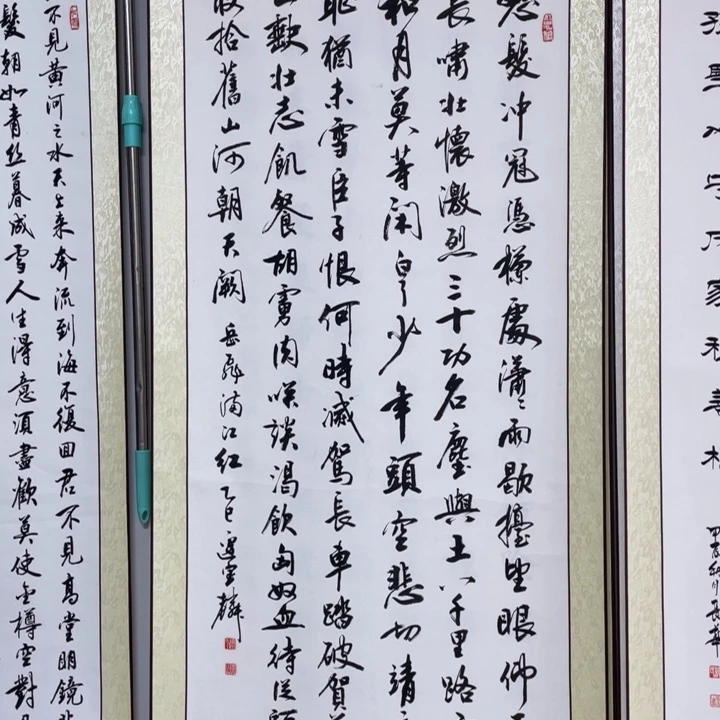 怒髮冲冠憑欄處瀟〻雨歇擡望眼仰天
長嘯壯懷激烈三十功名塵與土八千里路
和月莫等閑白了少年頭空悲切靖
恥猶未雪臣子恨何時滅駕長車踏破賀
缺壯志飢餐胡虜肉笑談渴飲匈奴血待從頭
收拾舊山河朝天闕 岳飛滿江紅 乙巳
不見黃河之水天上來奔流到海不復回君不見高堂明鏡悲
髮朝如青絲暮成雪人生得意須盡歡莫使金樽空對月